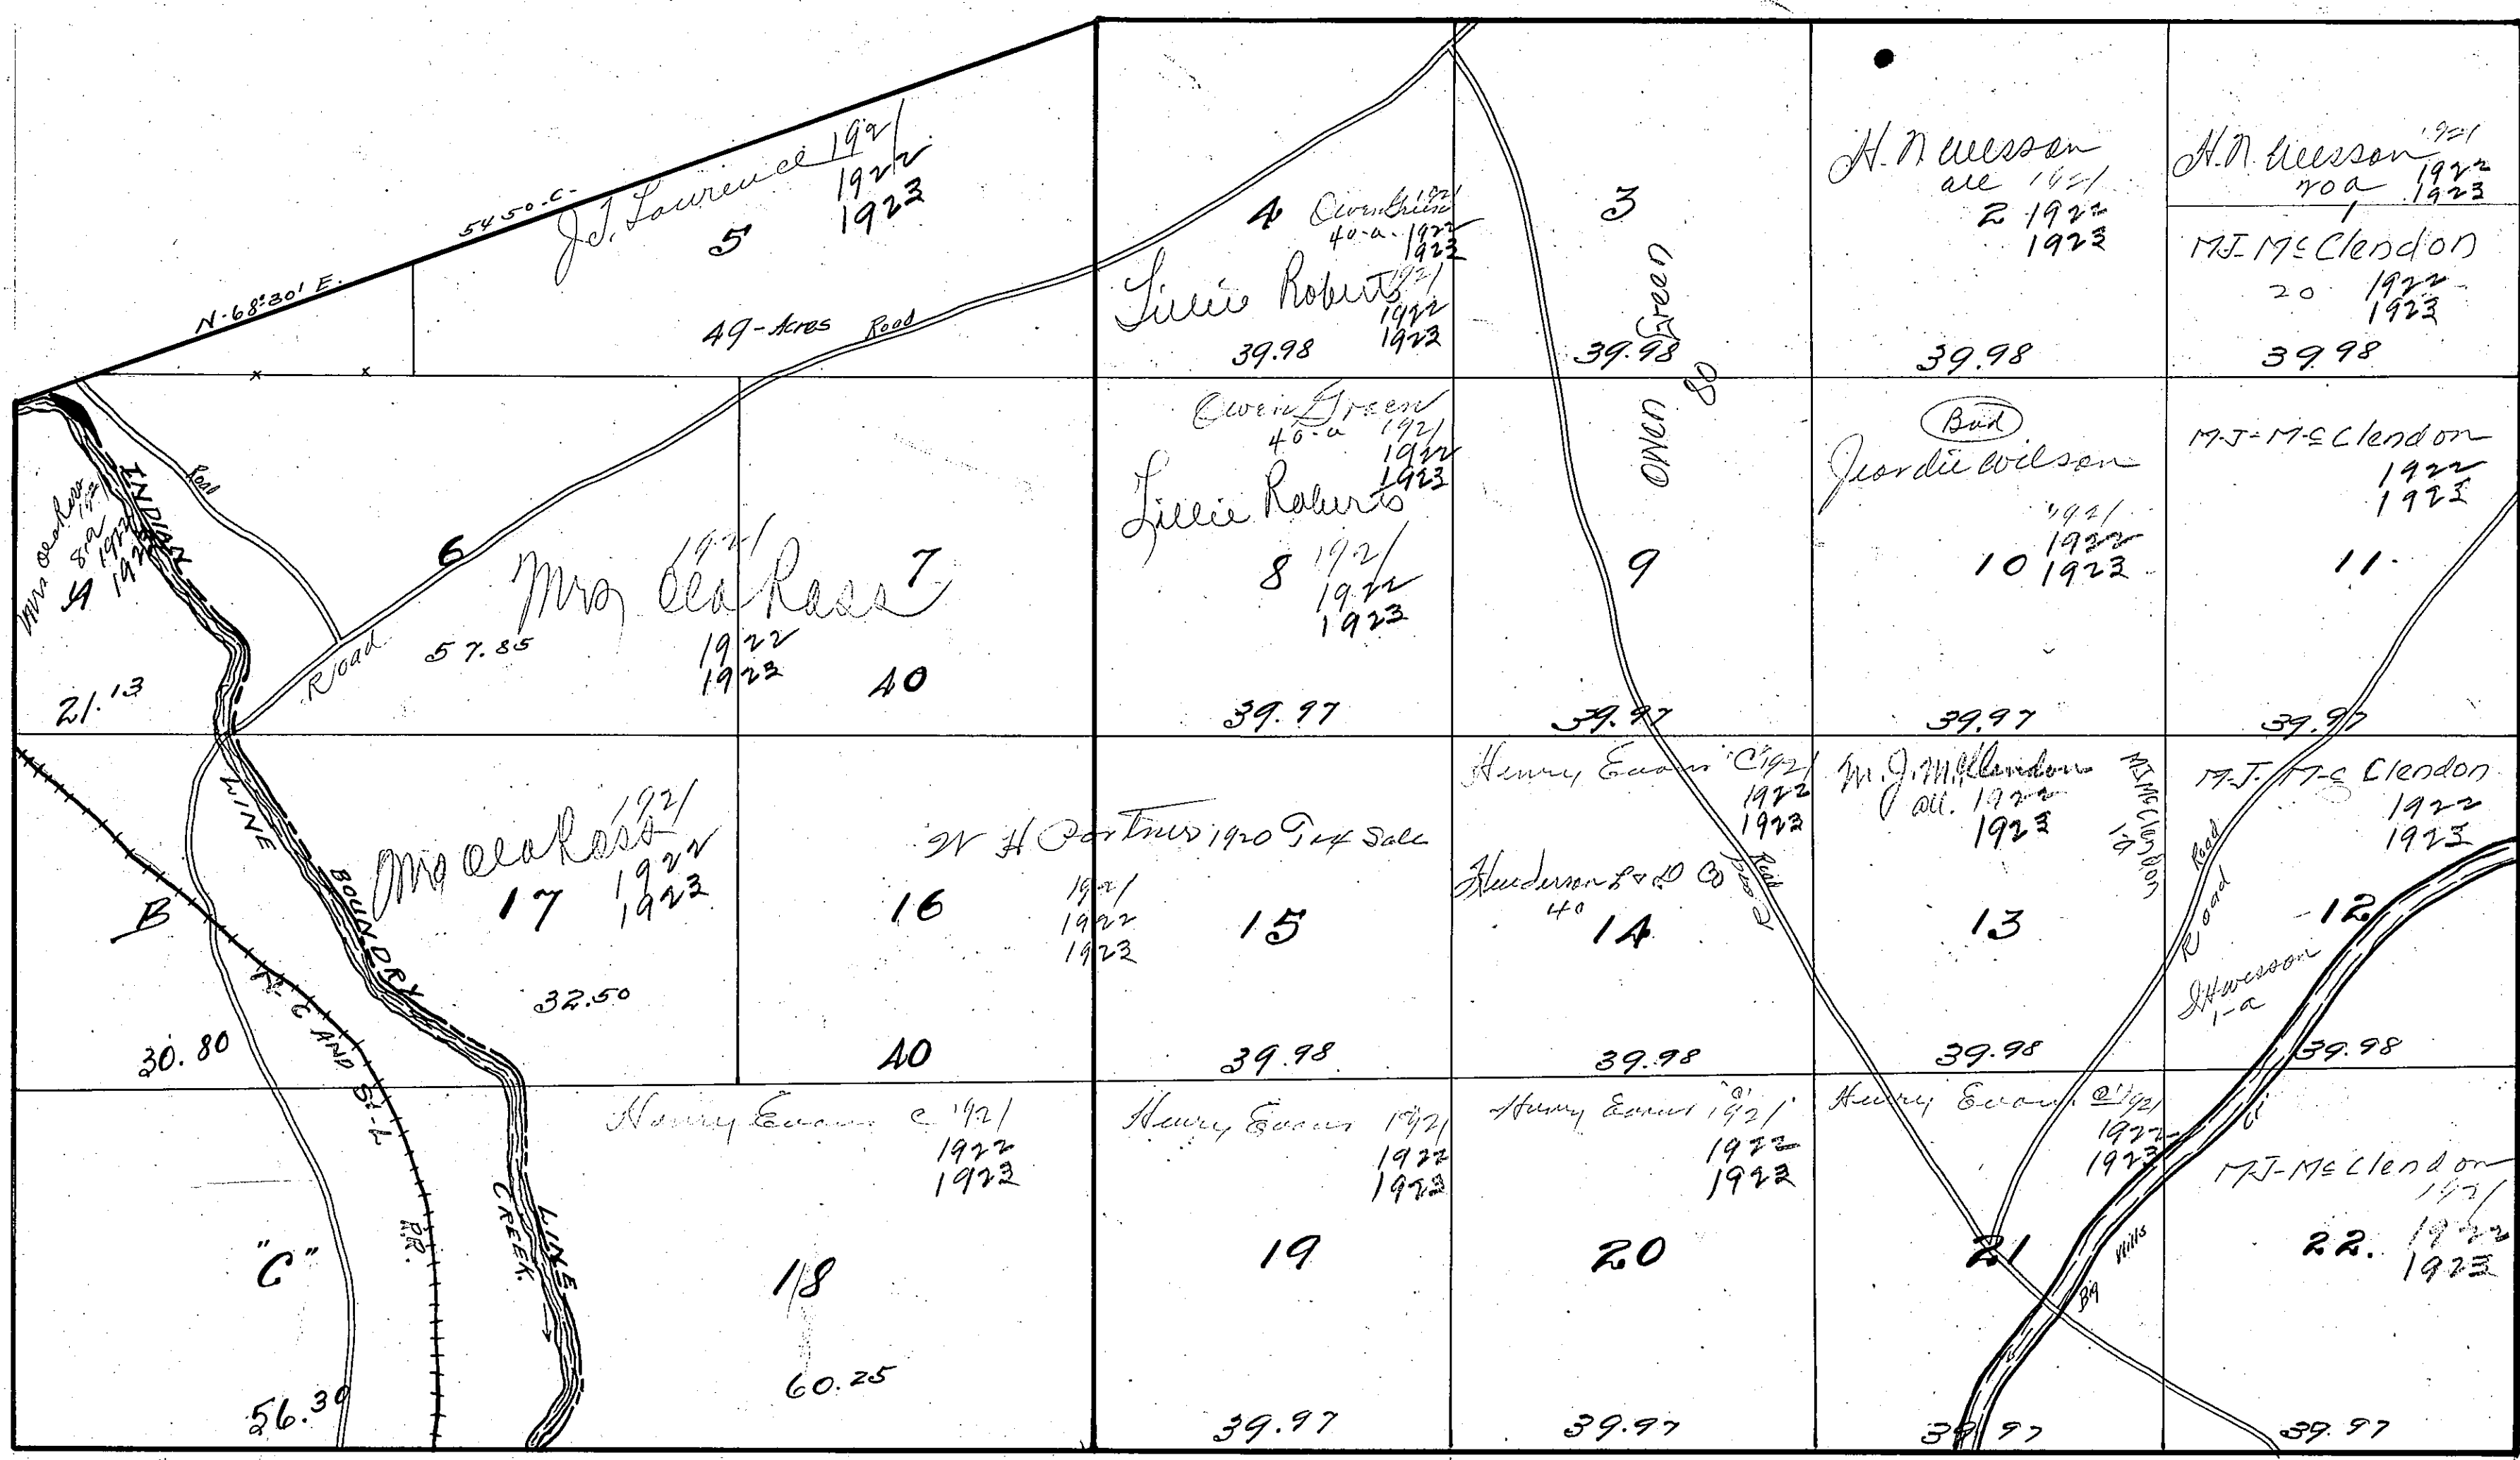 N-68°30' E.
5450-C-
J.J. Lawrence 1921
1922
1923
5
49-Acres Road
4 Owen Green 1921
40-a. 1922
1923
Lillie Roberts 1921
1922
1923
39.98
3
39.98
Owen Green
80
H. N. Wesson
all 1921
2 1922
1923
39.98
H. N. Wesson 1921
20 a 1922
1923
1
M.J. McClendon
20 1922
1923
39.98
Mrs Ola Ross
1921
8-a 1922
A 1923
21.13
INDIAN
Road
6
Road
57.85
Mrs Ola Ross
1921
1922
1923
7
40
Owen Green
40-a 1921
1922
1923
Lillie Roberts
8 1921
1922
1923
39.97
9
39.97
Bud
Jeordie Wilson
1921
1922
10 1923
39.97
M-J-McClendon
1922
1923
11.
39.97
B
30.80
K. C. AND S-L
R.R.
LINE
BOUNDRY
Mrs Ola Ross 1921
1922
17 1923
32.50
W H Portner 1920 Tax Sale
16
1921
1922
1923
40
15
39.98
Henry Evans "C" 1921
1922
1923
Henderson L & D Co
40
14
Road
Road
39.98
M. J. McClendon
all. 1922
1923
M.J. McClendon
13
39.98
M-J. McClendon
1922
1923
Road
Road
12
1-a
39.98
"C"
56.30
LINE
CREEK
Henry Evans C 1921
1922
1923
18
60.25
Henry Evans 1921
1922
1923
19
39.97
Henry Evans "C" 1921
1922
1923
20
39.97
Henry Evans "C" 1921
1922
1923
21
Big
39.97
M-J-McClendon
1921
22. 1922
1923
39.97